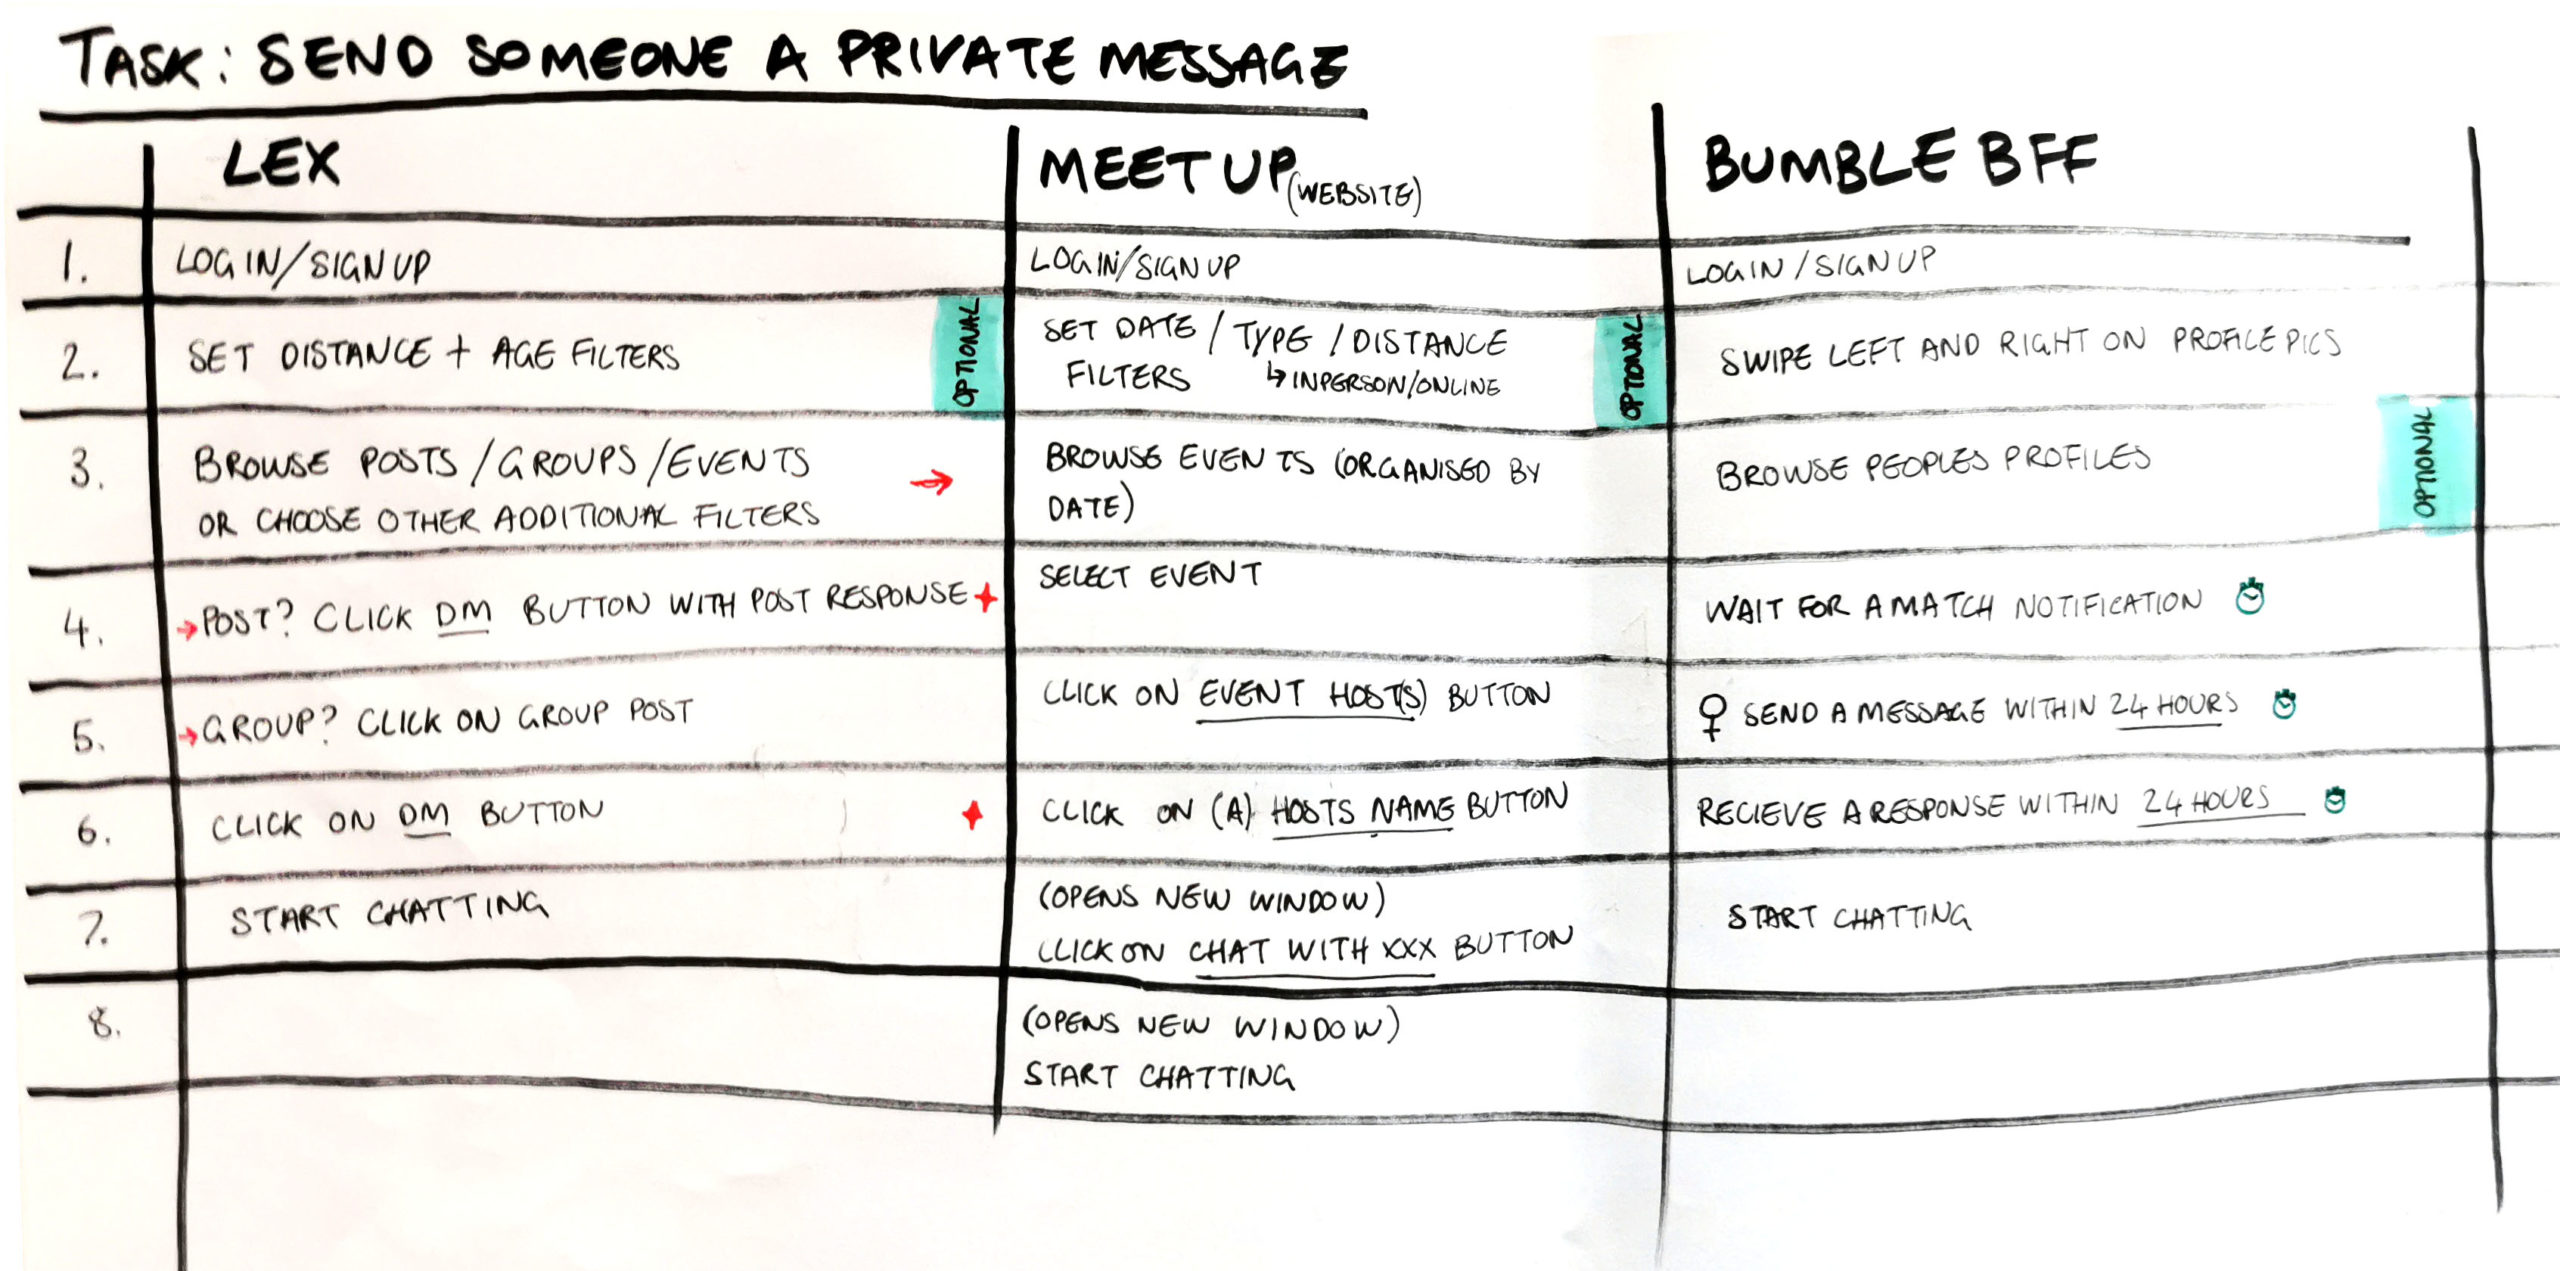 TASK: SEND SOMEONE A PRIVATE MESSAGE
LEX
MEETUP (WEBSITE)
BUMBLE BFF
1.
LOGIN/SIGNUP
LOGIN/SIGNUP
LOGIN/SIGNUP
2.
SET DISTANCE + AGE FILTERS
OPTIONAL
SET DATE / TYPE / DISTANCE
FILTERS ↳ INPERSON/ONLINE
OPTIONAL
SWIPE LEFT AND RIGHT ON PROFILE PICS
3.
BROWSE POSTS/GROUPS/EVENTS →
OR CHOOSE OTHER ADDITIONAL FILTERS
BROWSE EVENTS (ORGANISED BY
DATE)
BROWSE PEOPLES PROFILES
OPTIONAL
4.
→ POST? CLICK DM BUTTON WITH POST RESPONSE
SELECT EVENT
WAIT FOR A MATCH NOTIFICATION
5.
→ GROUP? CLICK ON GROUP POST
CLICK ON EVENT HOST(S) BUTTON
♀ SEND A MESSAGE WITHIN 24 HOURS
6.
CLICK ON DM BUTTON
CLICK ON (A) HOSTS NAME BUTTON
RECIEVE A RESPONSE WITHIN 24 HOURS
7.
START CHATTING
(OPENS NEW WINDOW)
CLICK ON CHAT WITH XXX BUTTON
START CHATTING
8.
(OPENS NEW WINDOW)
START CHATTING